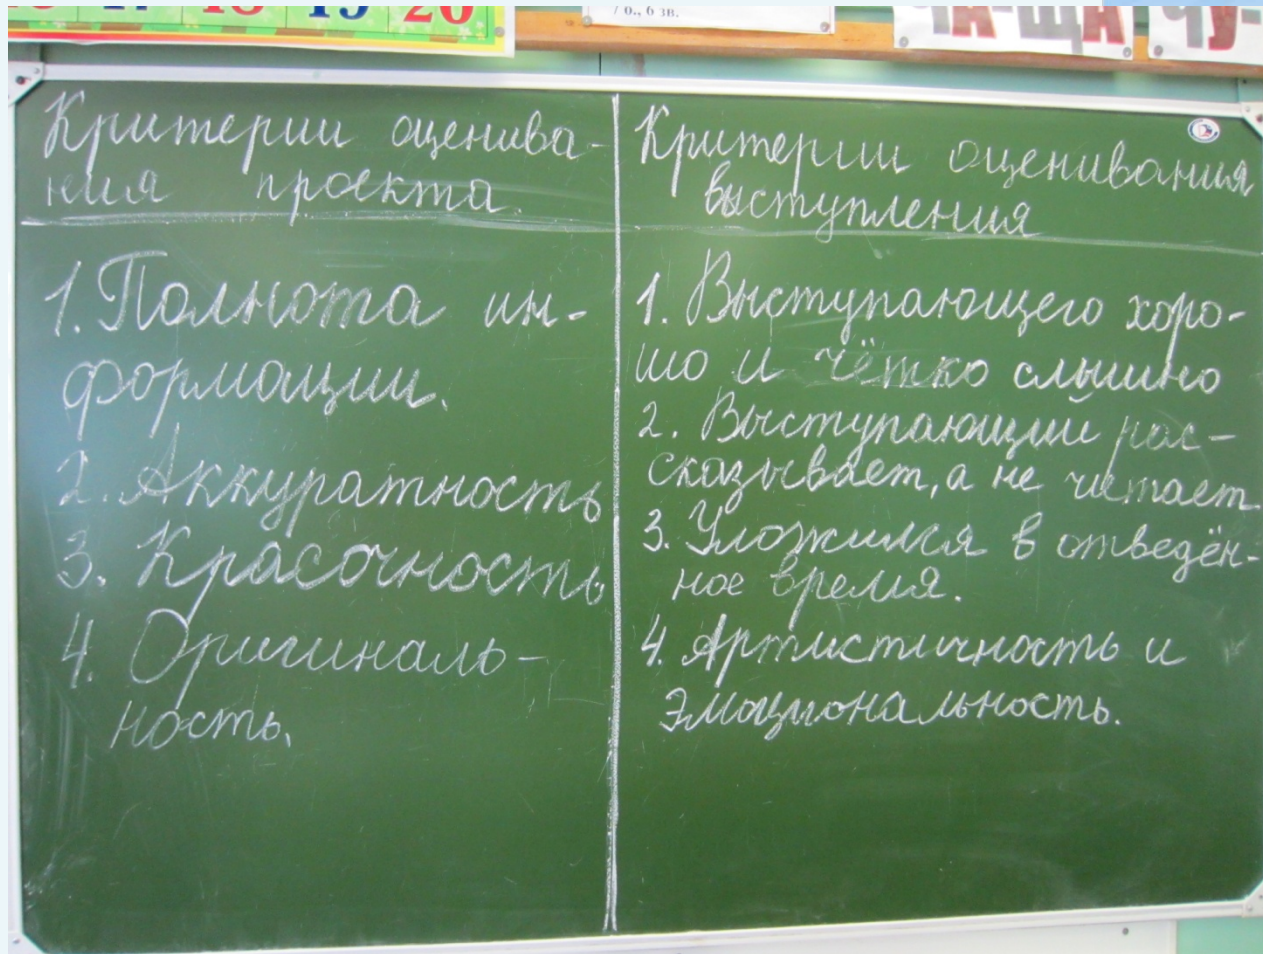 18 19 20
7 б., 6 зв.
ЧА-ЩА
ЧУ-
Критерии оценива-
ния проекта.
1. Полнота ин-
формации.
2. Аккуратность
3. Красочность
4. Оригиналь-
ность.
Критерии оценивания
выступления
1. Выступающего хоро-
шо и чётко слышно
2. Выступающий рас-
сказывает, а не читает
3. Уложился в отведён-
ное время.
4. Артистичность и
эмоциональность.